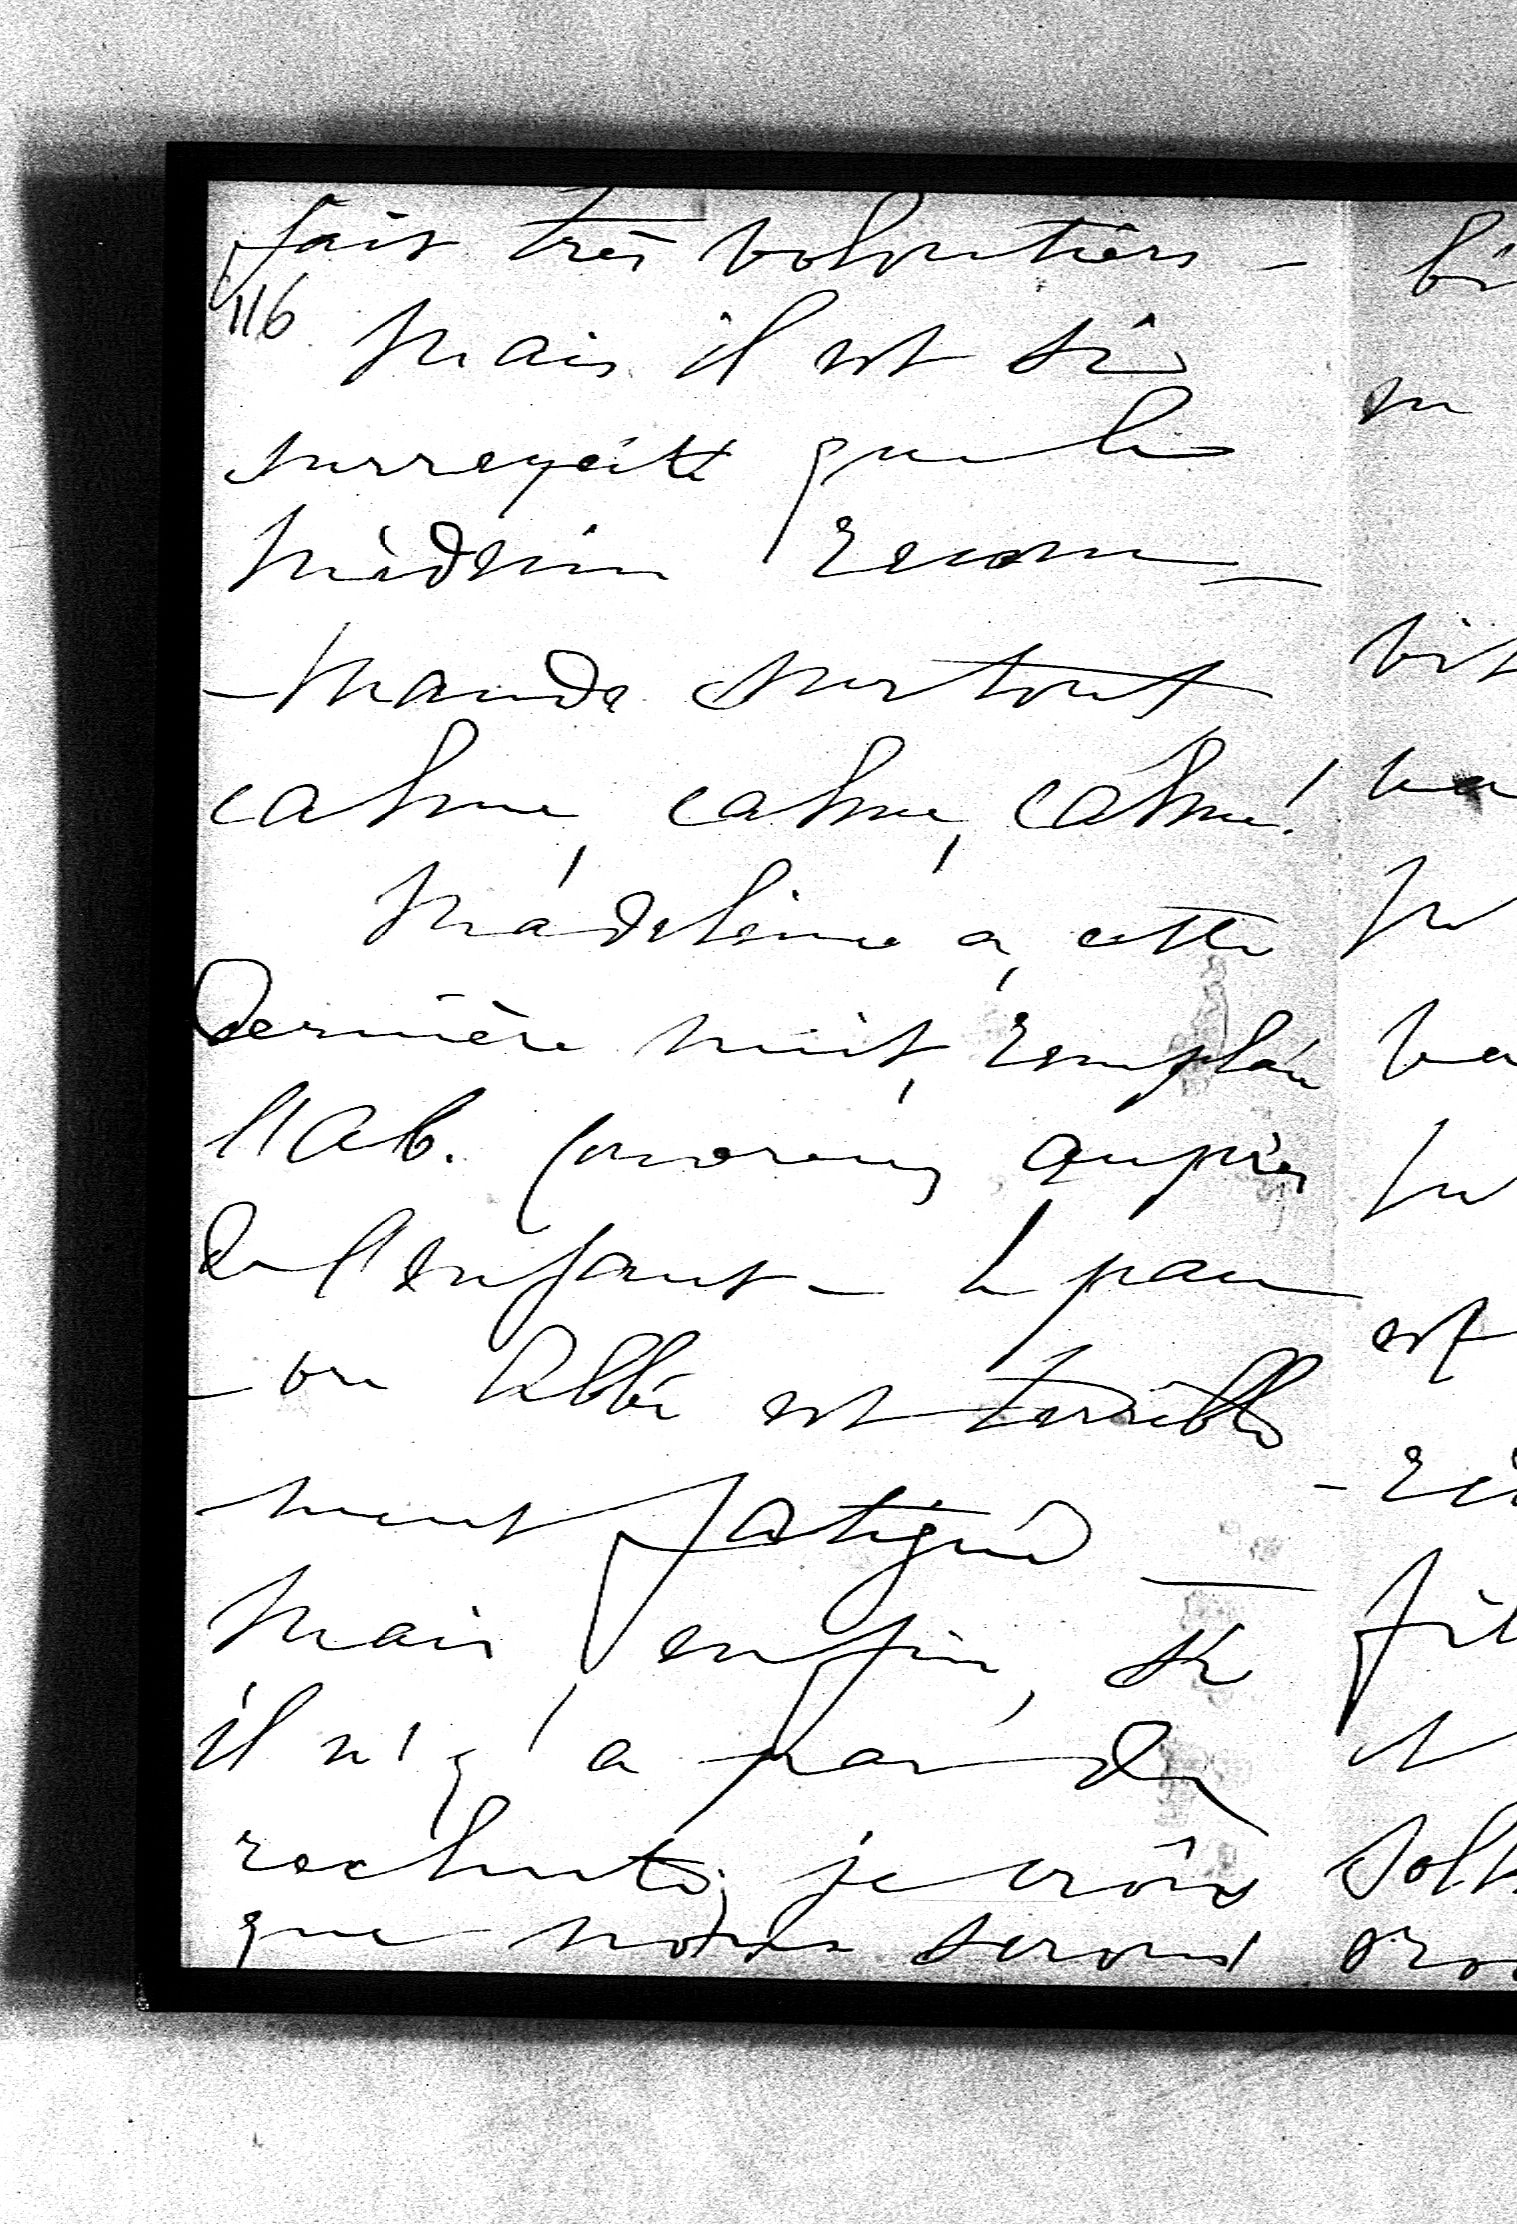 fais très volontiers –
116
Mais il est si
surrexcité que le
médecin recom-
-mande surtout
calme, calme, calme!
Madeleine a, cette
dernière nuit, remplacé
l'Ab. auprès
de l'enfant – le pau-
-vre Abbé est terrible
-ment fatigué –
Mais, enfin, si
il n'y a pas de
rechute, je crois
que nous serons